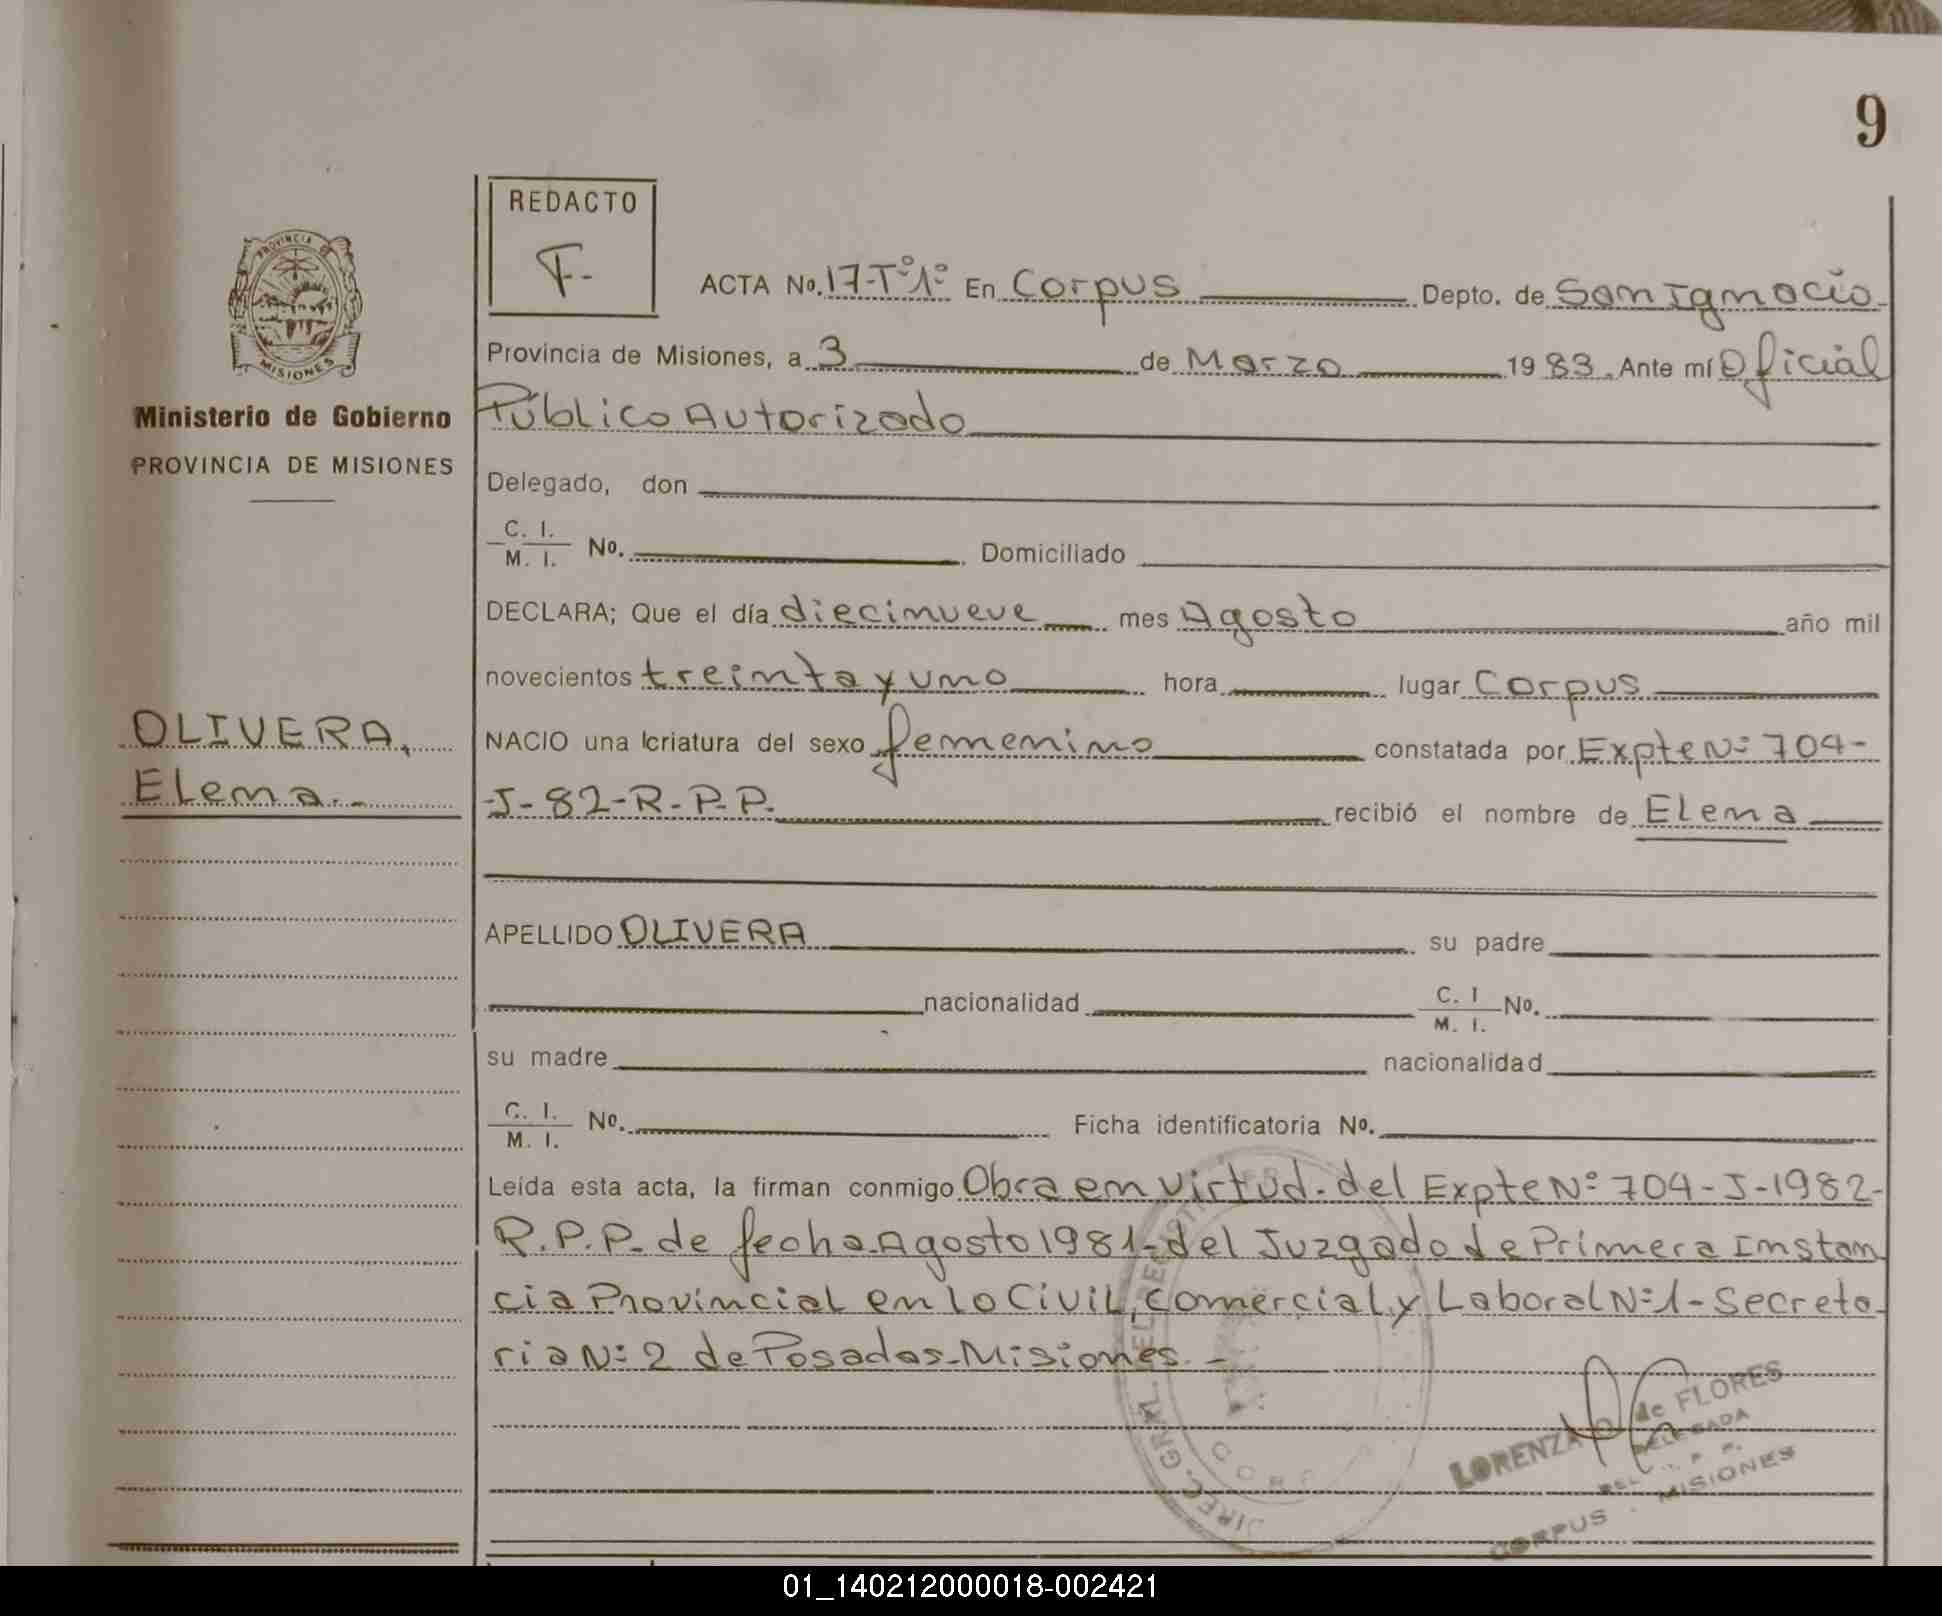 9
REDACTO
F.-
ACTA No. 17-Tº1º En Corpus Depto. de San Ignacio
Provincia de Misiones, a 3 de Marzo 1983. Ante mí Oficial
Público Autorizado
Delegado, don
C. I.
M. I. No. Domiciliado
DECLARA; Que el día diecinueve mes Agosto año mil
novecientos treinta y uno hora lugar Corpus
NACIO una criatura del sexo femenino constatada por Expte Nº 704-
J-82-R-P.P. recibió el nombre de Elena
APELLIDO OLIVERA su padre
nacionalidad C. I
M. I. No.
su madre nacionalidad
C. I.
M. I. No. Ficha identificatoria No.
Leída esta acta, la firman conmigo Obra en virtud. del Expte Nº 704-J-1982-
R.P.P. de fecha Agosto 1981- del Juzgado de Primera Instan
cia Provincial en lo Civil, Comercial y Laboral Nº1- Secreta-
ria Nº 2 de Posadas-Misiones.-
PROVINCIA DE
MISIONES
Ministerio de Gobierno
PROVINCIA DE MISIONES
OLIVERA,
Elena.-
DIREC. GRAL. DEL REG
LORENZA de FLORES
DELEGADA
CORPUS - MISIONES
01_140212000018-002421